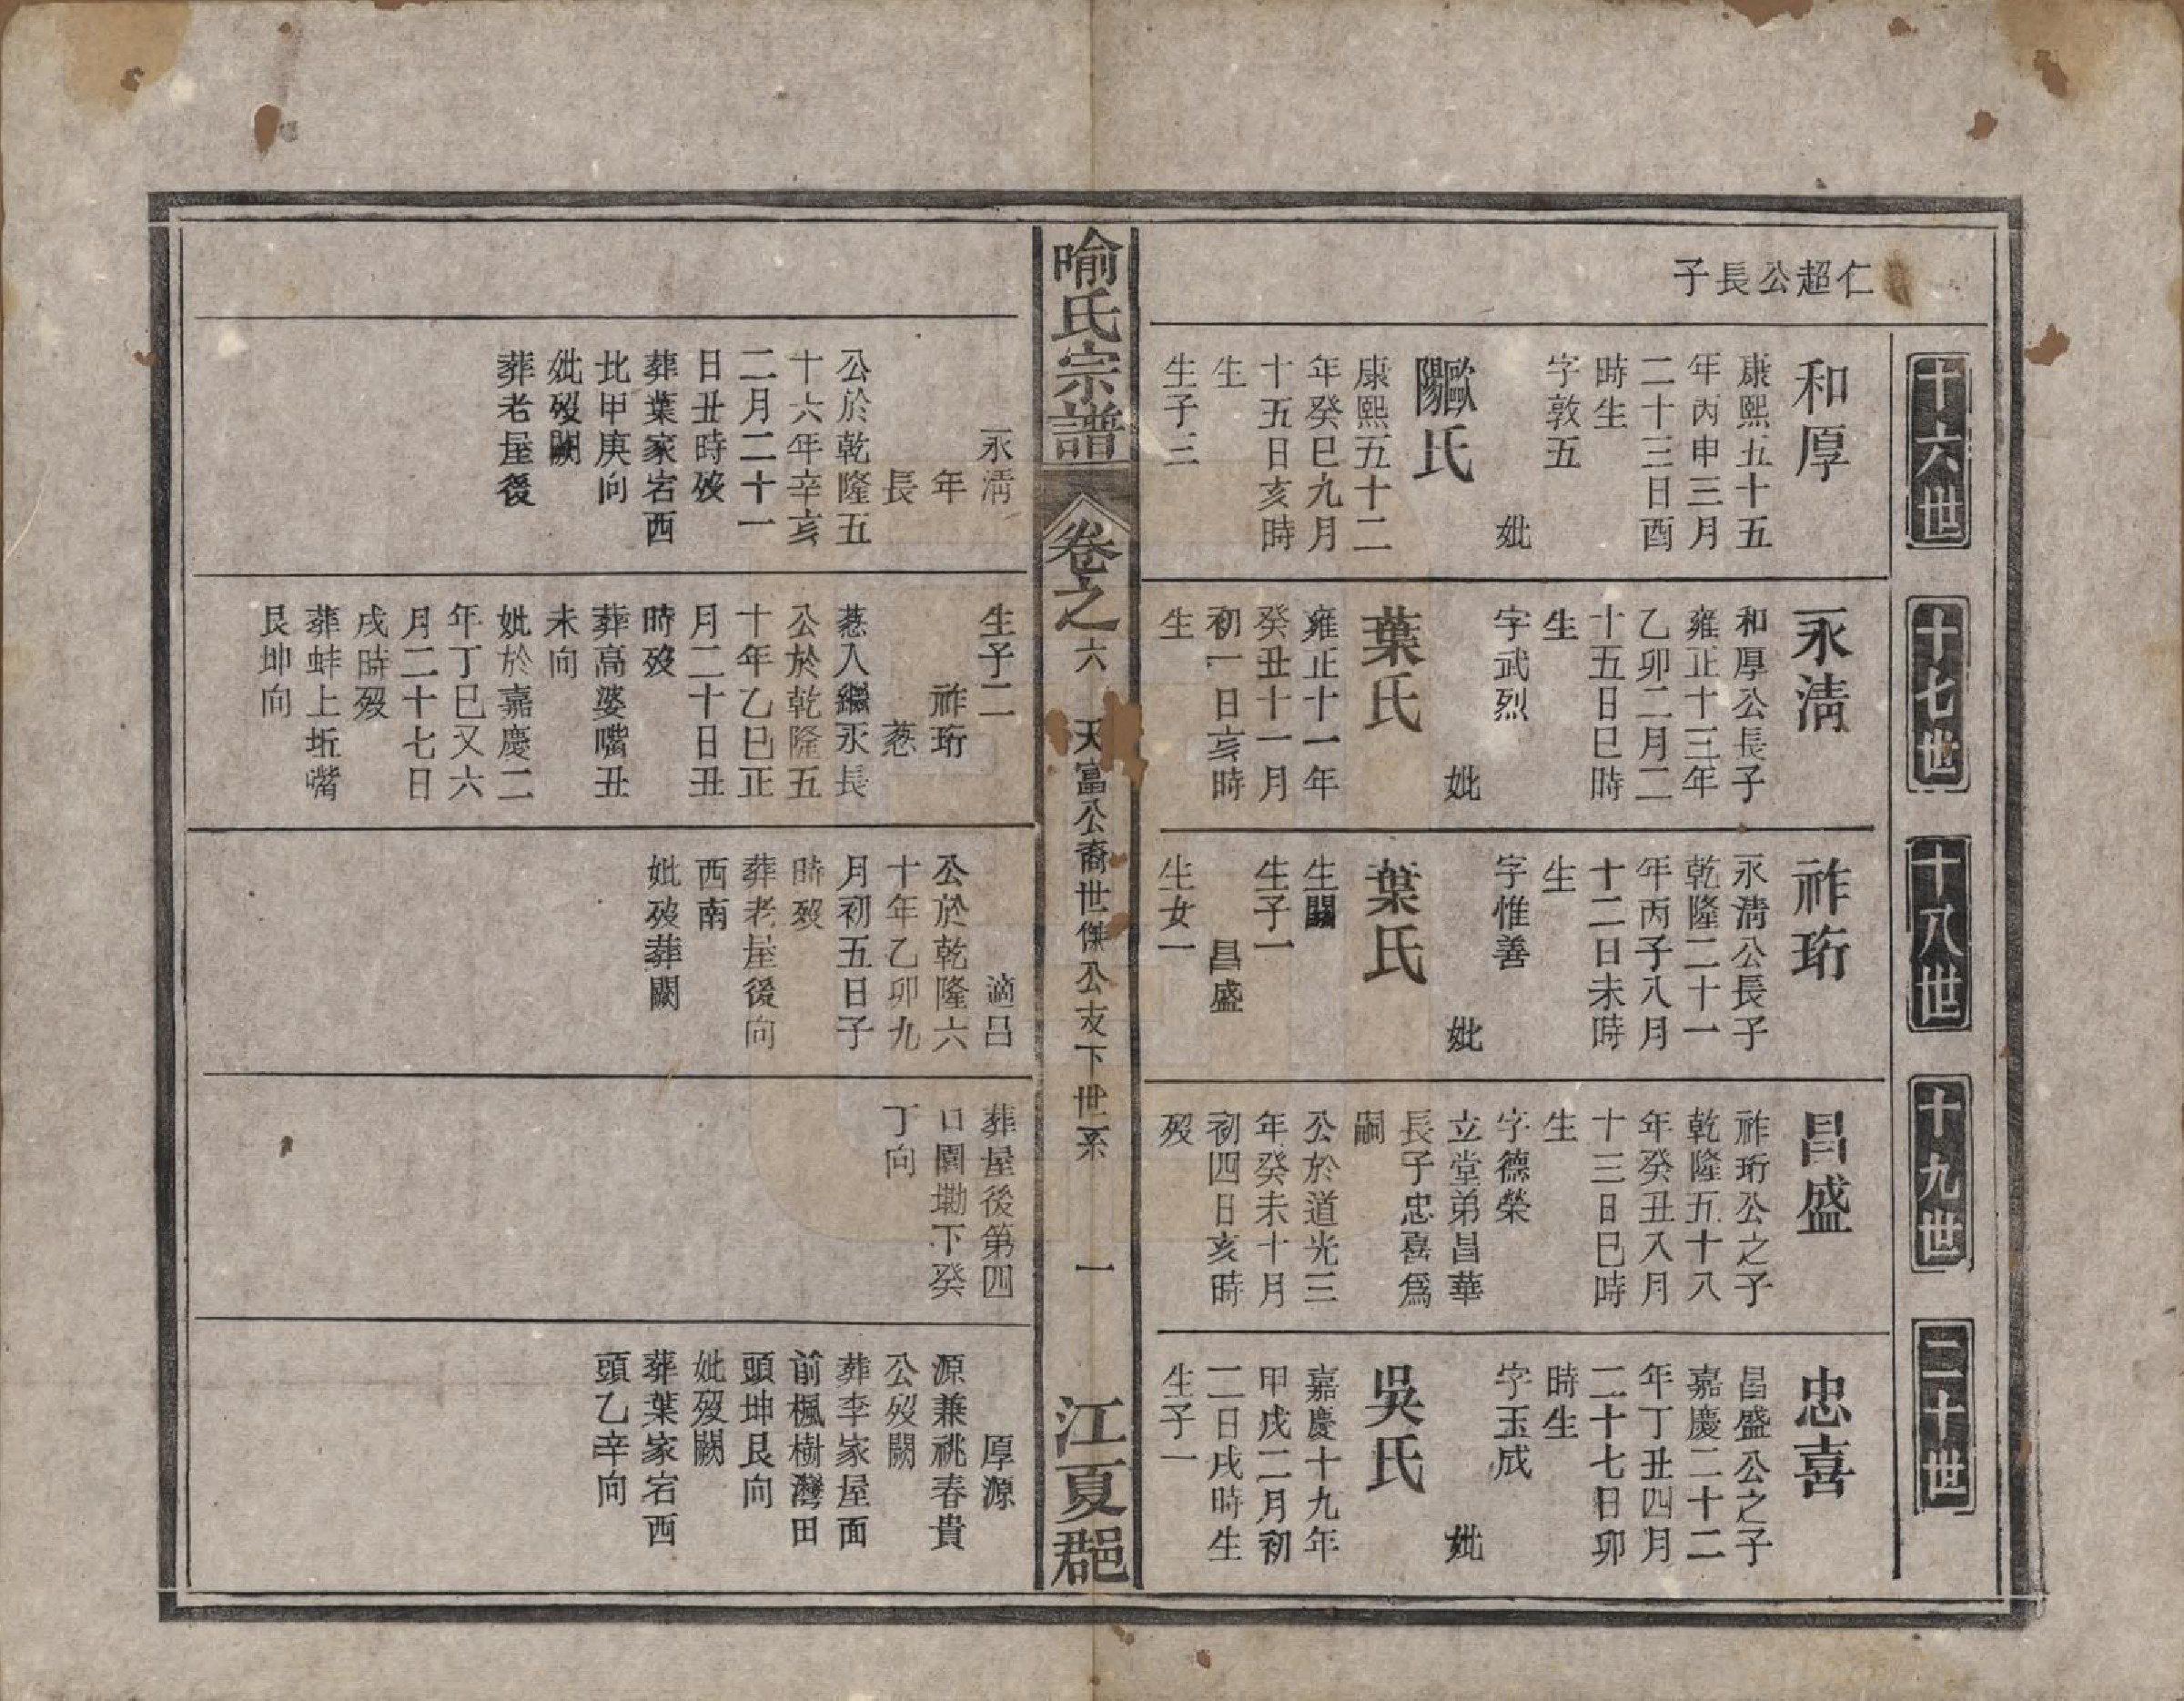 仁超公長子
十六世
和厚
康熙五十五
年丙申三月
二十三日酉
時生
字敦五
妣
歐陽氏
康熙五十二
年癸巳九月
十五日亥時
生
生子三
十七世
永淸
和厚公長子
雍正十三年
乙卯二月二
十五日巳時
生
字武烈
妣
葉氏
雍正十一年
癸丑十一月
初一日亥時
生
十八世
祚珩
永淸公長子
乾隆二十一
年丙子八月
十二日未時
生
字惟善
妣
葉氏
生闕
生子一
昌盛
生女一
十九世
昌盛
祚珩公之子
乾隆五十八
年癸丑八月
十三日巳時
生
字德榮
立堂弟昌華
長子忠喜爲
嗣
公於道光三
年癸未十月
初四日亥時
歿
二十世
忠喜
昌盛公之子
嘉慶二十二
年丁丑四月
二十七日卯
時生
字玉成
妣
吳氏
嘉慶十九年
甲戌二月初
二日戌時生
生子一
喻氏宗譜
卷之六
天富公裔世傑公支下世系
一
江夏郡
永淸
年
長
公於乾隆五
十六年辛亥
二月二十一
日丑時歿
葬葉家宕西
北甲庚向
妣歿闕
葬老屋後
生子二
祚珩
葱
葱入繼永長
公於乾隆五
十年乙巳正
月二十日丑
時歿
葬高婆嘴丑
未向
妣於嘉慶二
年丁巳又六
月二十七日
戌時歿
葬蚌上坵嘴
艮坤向
適呂
公於乾隆六
十年乙卯九
月初五日子
時歿
葬老屋後向
西南
妣歿葬闕
葬屋後第四
口園塝下癸
丁向
厚源
源兼祧春貴
公歿闕
葬李家屋面
前楓樹灣田
頭坤艮向
妣歿闕
葬葉家宕西
頭乙辛向